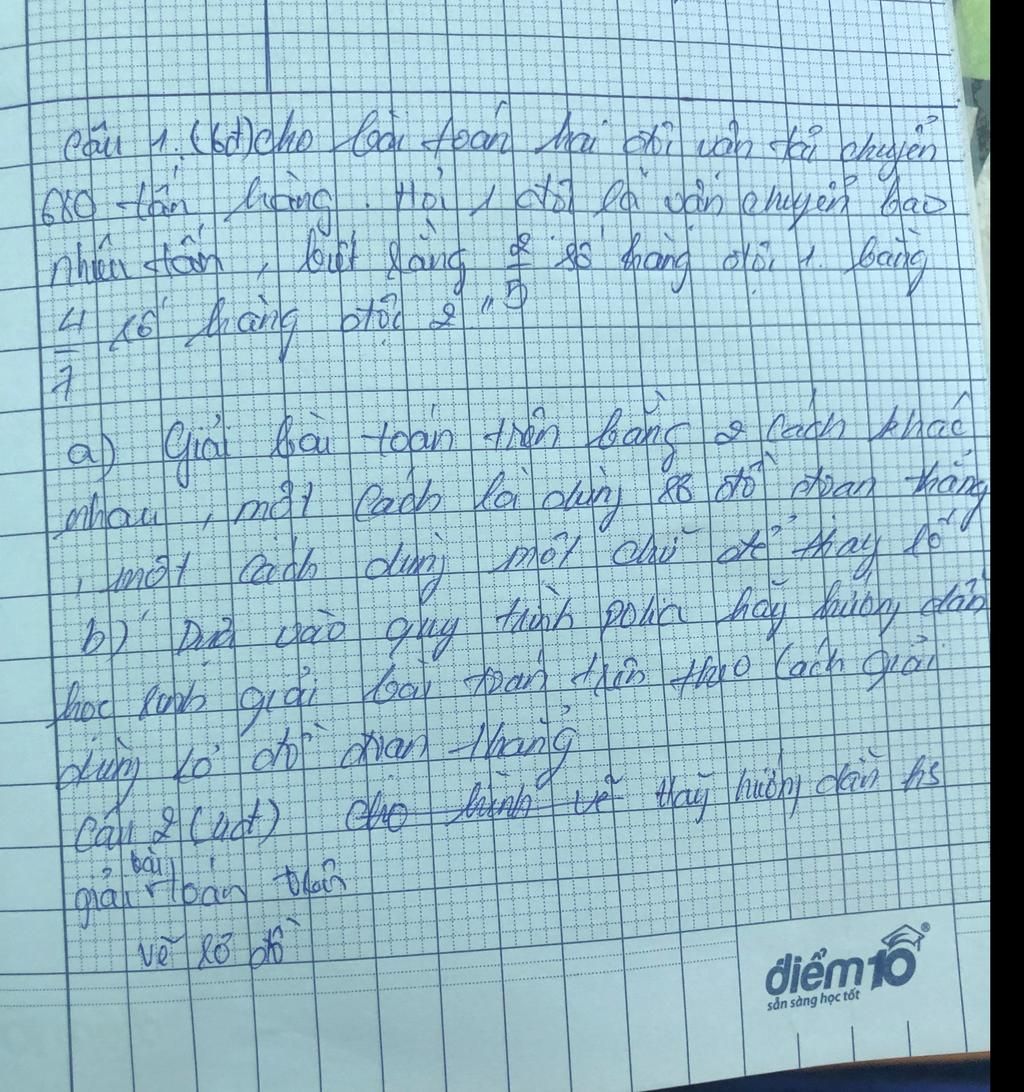 Câu 1. (6đ) cho bài toán hai đội vận tải chuyển
680 tấn hàng. Hỏi 1 đội đã vận chuyển bao
nhiêu tấn, biết rằng 2/5 số hàng đội 1. bằng
4/7 số hàng đội 2"
a) Giải bài toán trên bằng 2 cách khác
nhau, một cách là dùng sơ đồ đoạn thẳng
, một cách dùng một chữ để thay số
b) Dựa vào quy trình polia hãy hướng dẫn
học sinh giải bài toán trên theo cách giải
dùng sơ đồ đoạn thẳng
Câu 2 (4đ) cho hình vẽ hãy hướng dẫn hs
giải bài toán trên
vẽ sơ đồ
điểm10®
sẵn sàng học tốt